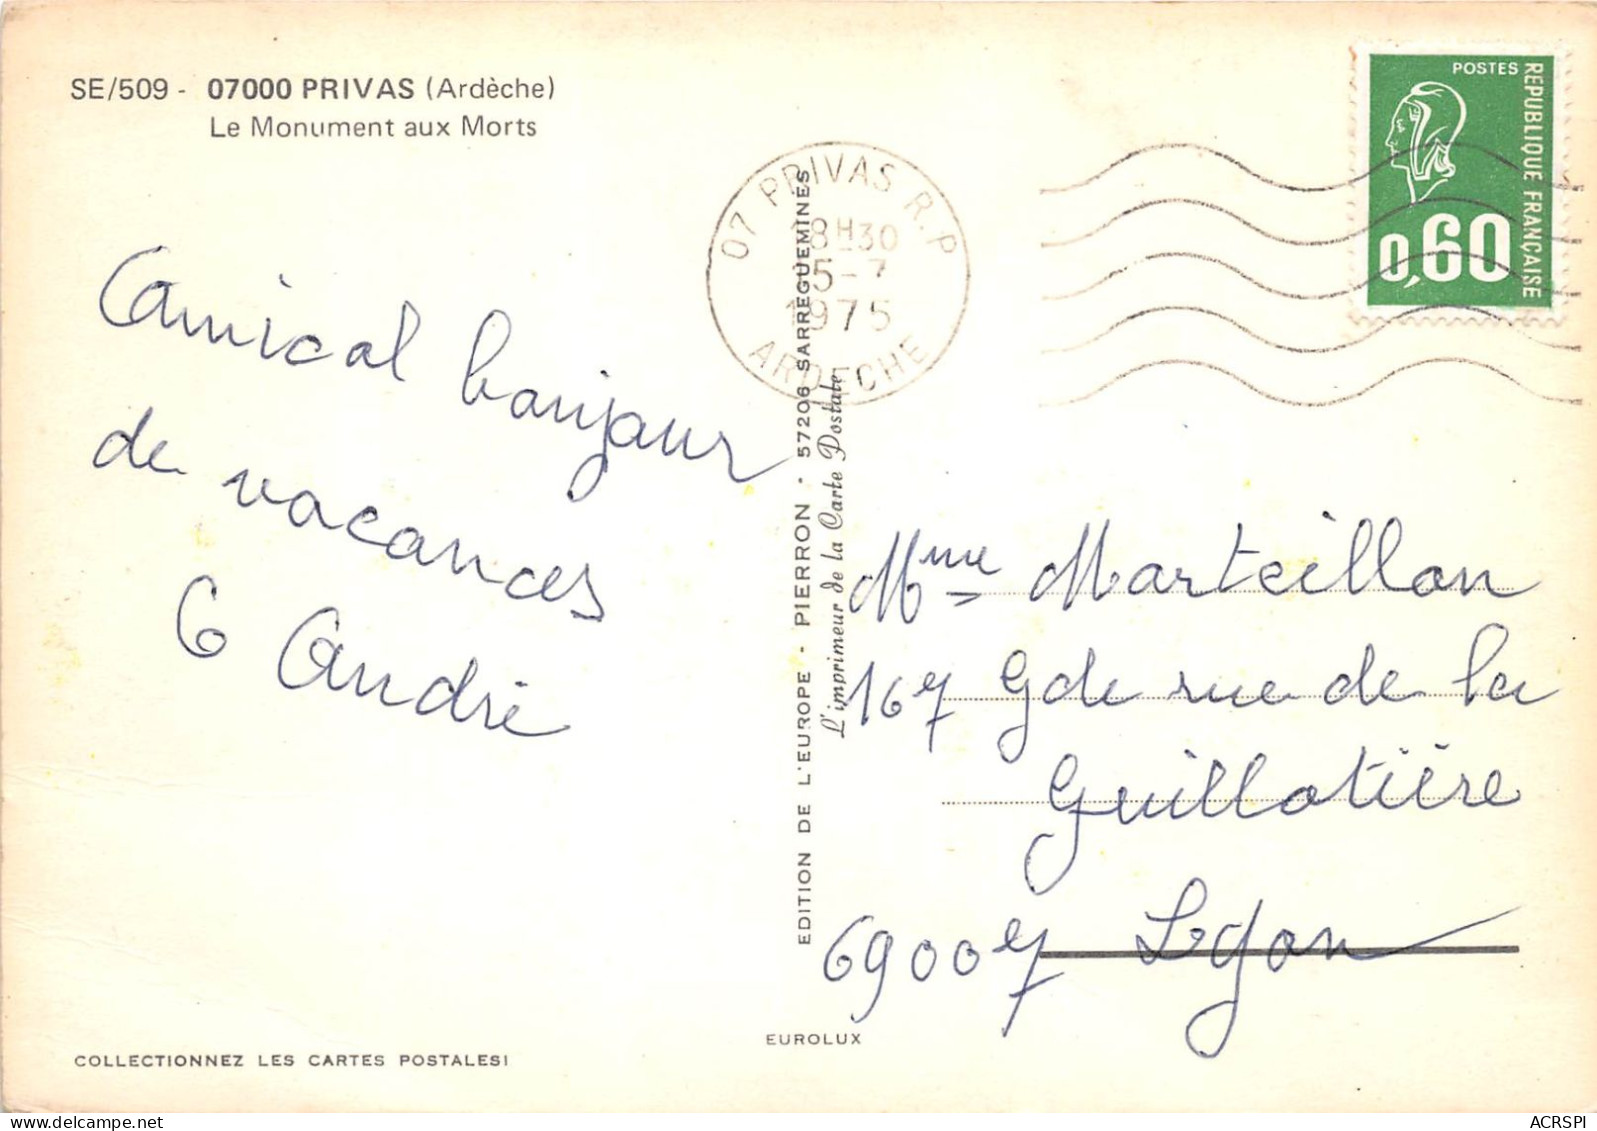 SE/509 - 07000 PRIVAS (Ardèche)
Le Monument aux Morts
07 PRIVAS R.P
18H30
5-7
1975
ARDECHE
POSTES
REPUBLIQUE FRANÇAISE
0,60
Amical bonjour
de vacances
G André
EDITION DE L'EUROPE - PIERRON - 57206 SARREGUEMINES
L'imprimeur de la Carte Postale
Mme Marteillon
167 Gde rue de la
Guillotière
69007 Lyon
EUROLUX
COLLECTIONNEZ LES CARTES POSTALES!
ACRSPI